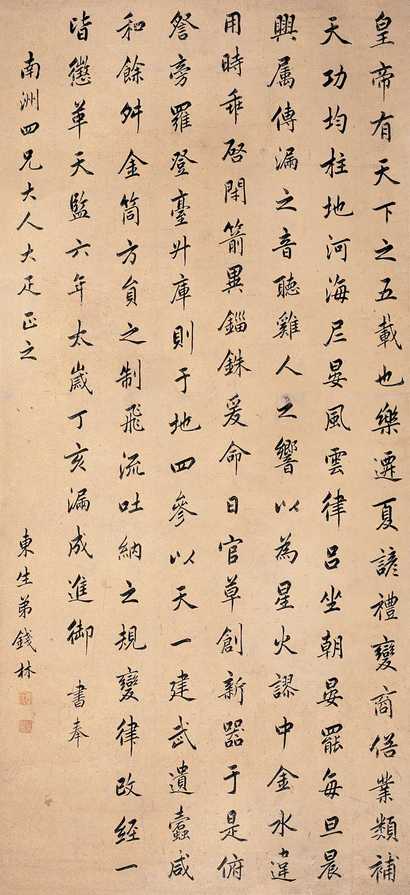 皇帝有天下之五載也樂遷夏諺禮變商俗業類補
天功均柱地河海尼晏風雲律呂坐朝晏罷每旦晨
興属傳漏之音聽雞人之響以為星火謬中金水違
用時乖啓閉箭異錙銖爰命日官草創新器于是俯
詧旁羅登臺升庫則于地四參以天一建武遺蠹咸
和餘舛金筒方員之制飛流吐納之規變律改經一
皆懲革天監六年太歲丁亥漏成進御 書奉
南洲四兄大人大疋正之
東生弟錢林